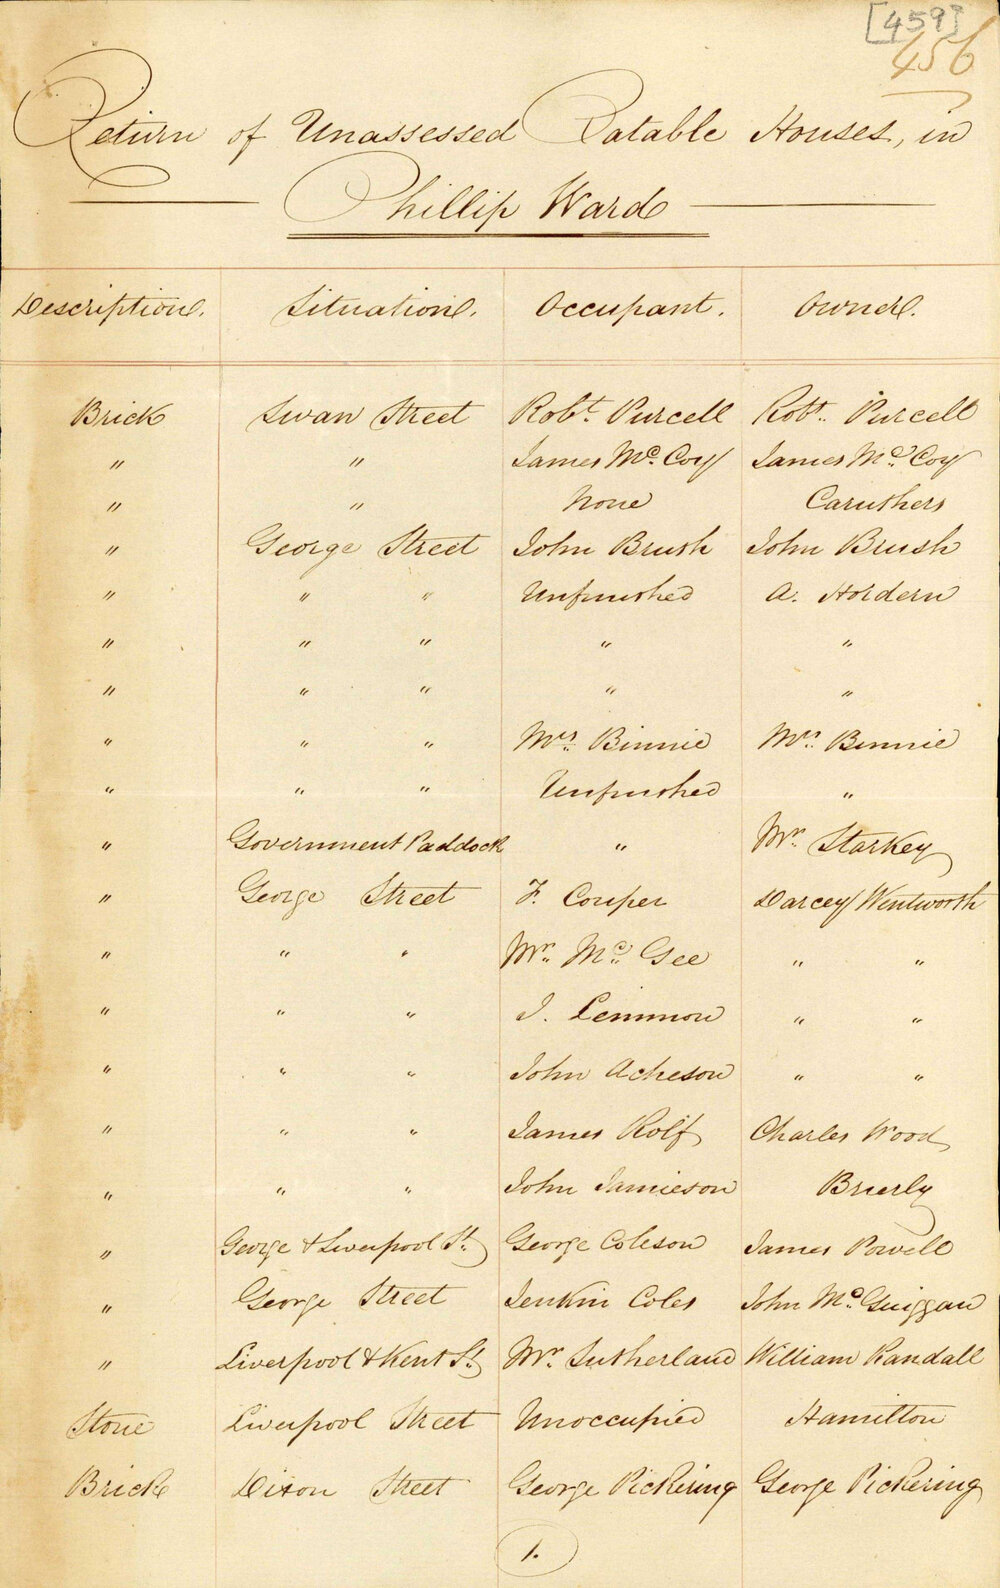 [459]
456
Return of Unassessed Ratable Houses, in
Phillip Ward
Description. Situation. Occupant. Owner.
Brick Swan Street Robt. Purcell Robt. Purcell
" " James Mc. Coy James Mc. Coy
" " None Caruthers
" George Street John Brush John Brush
" " " Unfinished A. Hordern
" " " " "
" " " " "
" " " Mrs. Binnie Mrs. Binnie
" " " Unfinished "
" Government Paddock " Mr. Starkey
" George Street F. Couper Darcey Wentworth
" " " Mr. Mc. Gee " "
" " " J. Lemmon " "
" " " John Acheson " "
" " " James Rolf Charles Wood
" " " John Jamieson Brierly
" George & Liverpool St. George Coleson James Powell
" George Street Jenkin Coles John Mc. Guiggan
" Liverpool & Kent St. Mr. Sutherland William Randall
Stone Liverpool Street Unoccupied Hamilton
Brick Dixon Street George Pickering George Pickering
1.